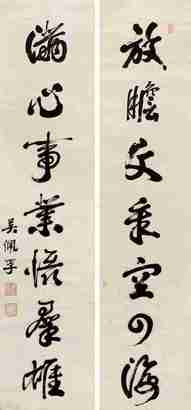 放膽文章空四海
滿心事業群雄
吳佩孚